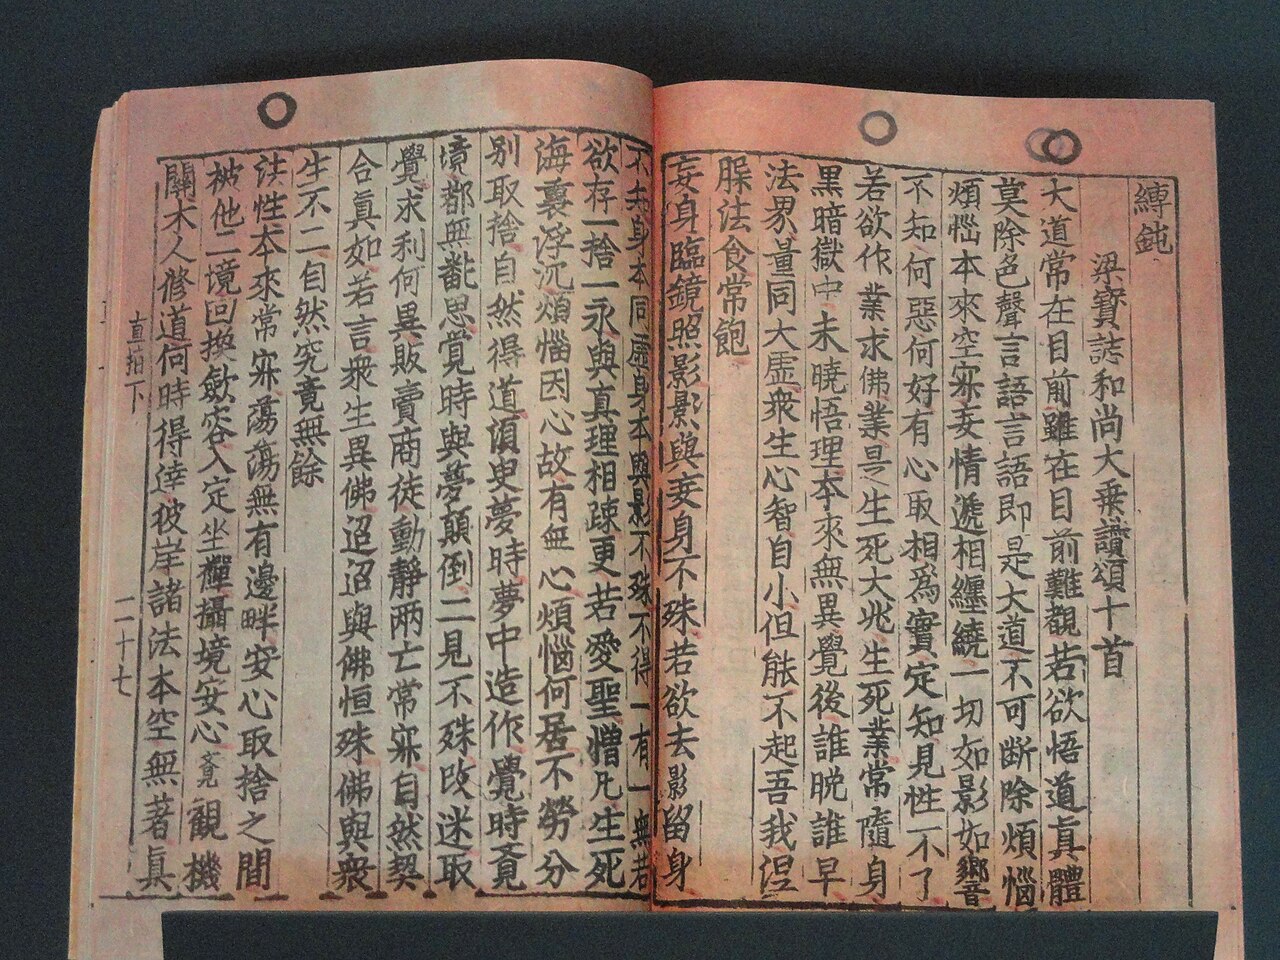 縛鈍
梁寶誌和尚大乗讃頌十首
大道常在目前雖在目前難覩若欲悟道真體
莫除色聲言語言語即是大道不可断除煩惱
煩惱本來空寂妄情遞相纏繞一切如影如響
不知何惡何好有心取相爲實定知見性不了
若欲作業求佛業是生死大兆生死業常隨身
黑暗獄中未曉悟理本來無異覺後誰晩誰早
法界量同大虛衆生心智自小但能不起吾我涅
槃法食常飽
妄身臨鏡照影影與妄身不殊若欲去影留身
不去身本同虛身本與影不殊不得一有一無若
欲存一捨一永與真理相疎更若愛聖憎凡生死
海裏浮沉煩惱因心故有無心煩惱何居不勞分
别取捨自然得道湏臾夢時夢中造作覺時覔
境都無飜思覺時與夢顛倒二見不殊改迷取
覺求利何異販賣商徒動靜兩亡常寂自然契
合真如若言衆生異佛迢迢與佛恒殊佛與衆
生不二自然究竟無餘
法性本來常寂蕩蕩無有邊畔安心取捨之間
被他二境回換歛容入定坐禪攝境安心覔觀機
關木人修道何時得達彼岸諸法本空無著真
直指下
二十七